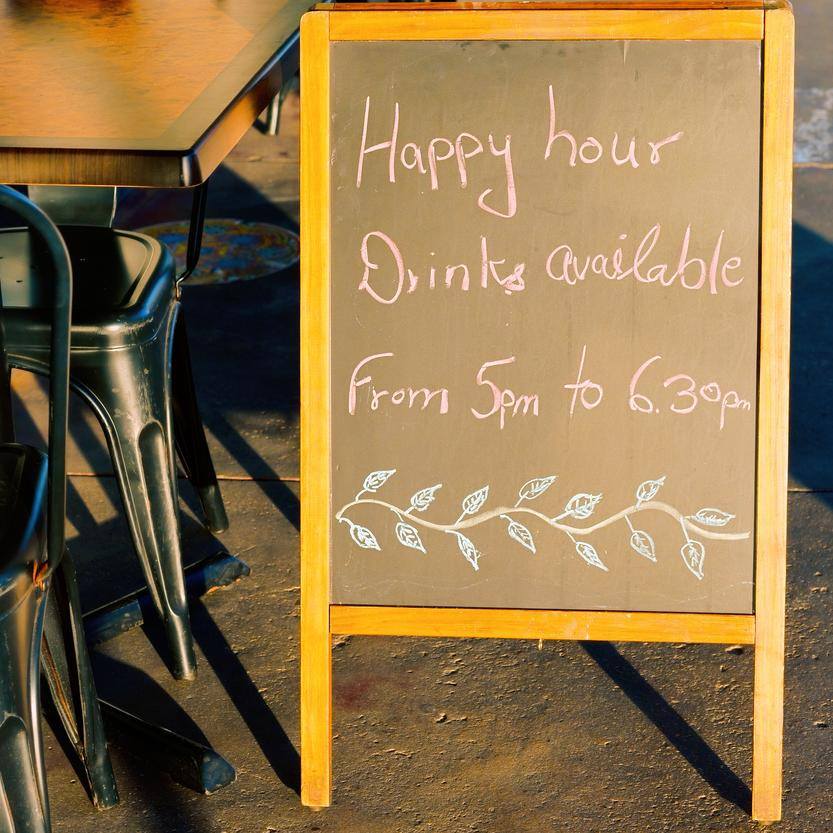 Happy hour
Drinks available
From 5pm to 6.30pm